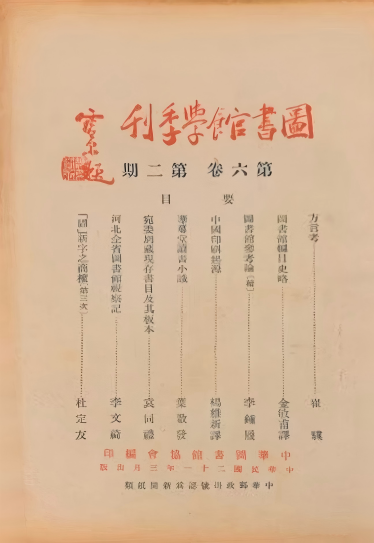 圖書館學季刊
第六卷 第二期
要目
方言考 崔驥
圖書館編目史略 金敏甫譯
圖書館參考論(續) 李鍾履
中國印刷起源 楊維新譯
堂讀書小識 葉啟發
宛委別藏現存書目及其版本 袁同禮
河北全省圖書館視察記 李文䄎
「圕」新字之商榷(第三次) 杜定友
中華圖書館協會編印
中華民國二十一年三月出版
中華郵政掛號認為新聞紙類